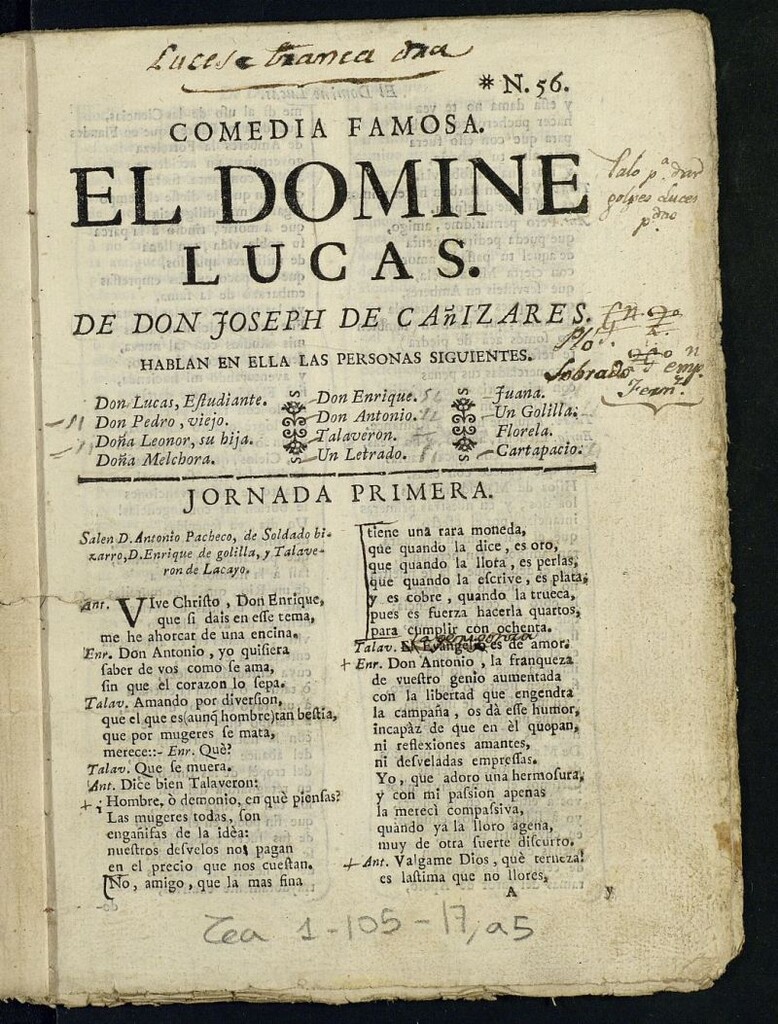 * N. 56.
COMEDIA FAMOSA.
EL DOMINE
LUCAS.
DE DON JOSEPH DE CAñIZARES.
HABLAN EN ELLA LAS PERSONAS SIGUIENTES.
Palo pª dar
golpes Luces
Don Lucas, Eſtudiante.
Don Pedro, viejo.
Doña Leonor, su hija.
Doña Melchora.
Don Enrique.
Don Antonio.
Talaveron.
Un Letrado.
Juana.
Un Golilla.
Florela.
Cartapacio.
JORNADA PRIMERA.
Salen D. Antonio Pacheco, de Soldado bi-
zarro, D. Enrique de golilla, y Talave-
ron de Lacayo.
Ant. VIve Chriſto, Don Enrique,
que ſi dais en eſſe tema,
me he ahorcar de una encina.
Enr. Don Antonio, yo quiſiera
ſaber de vos como ſe ama,
ſin que el corazon lo ſepa.
Talav. Amando por diverſion,
que el que es(aunq̃ hombre)tan beſtia,
que por mugeres ſe mata,
merece::- Enr. Què?
Talav. Que se muera.
Ant. Dice bien Talaveron:
+ Hombre, ò demonio, en què pienſas?
Las mugeres todas, ſon
engañifas de la idèa:
nueſtros deſvelos nos pagan
en el precio que nos cueſtan.
No, amigo, que la mas fina
tiene una rara moneda,
que quando la dice, es oro,
que quando la llora, es perlas,
que quando la eſcrive, es plata,
y es cobre, quando la trueca,
pues es fuerza hacerla quartos,
para cumplir con ochenta.
Talav. Evangelio es de amor.
+ Enr. Don Antonio, la franqueza
de vueſtro genio aumentada
con la libertad que engendra
la campaña, os dà eſſe humor,
incapàz de que en èl quepan,
ni reflexiones amantes,
ni deſveladas empreſſas.
Yo, que adoro una hermoſura,
y con mi paſſion apenas
la merecì compaſsiva,
quando ya la lloro agena,
muy de otra ſuerte diſcurro.
+ Ant. Valgame Dios, què terneza!
es laſtima que no llores,
A y
Tea 1-105-17, a5